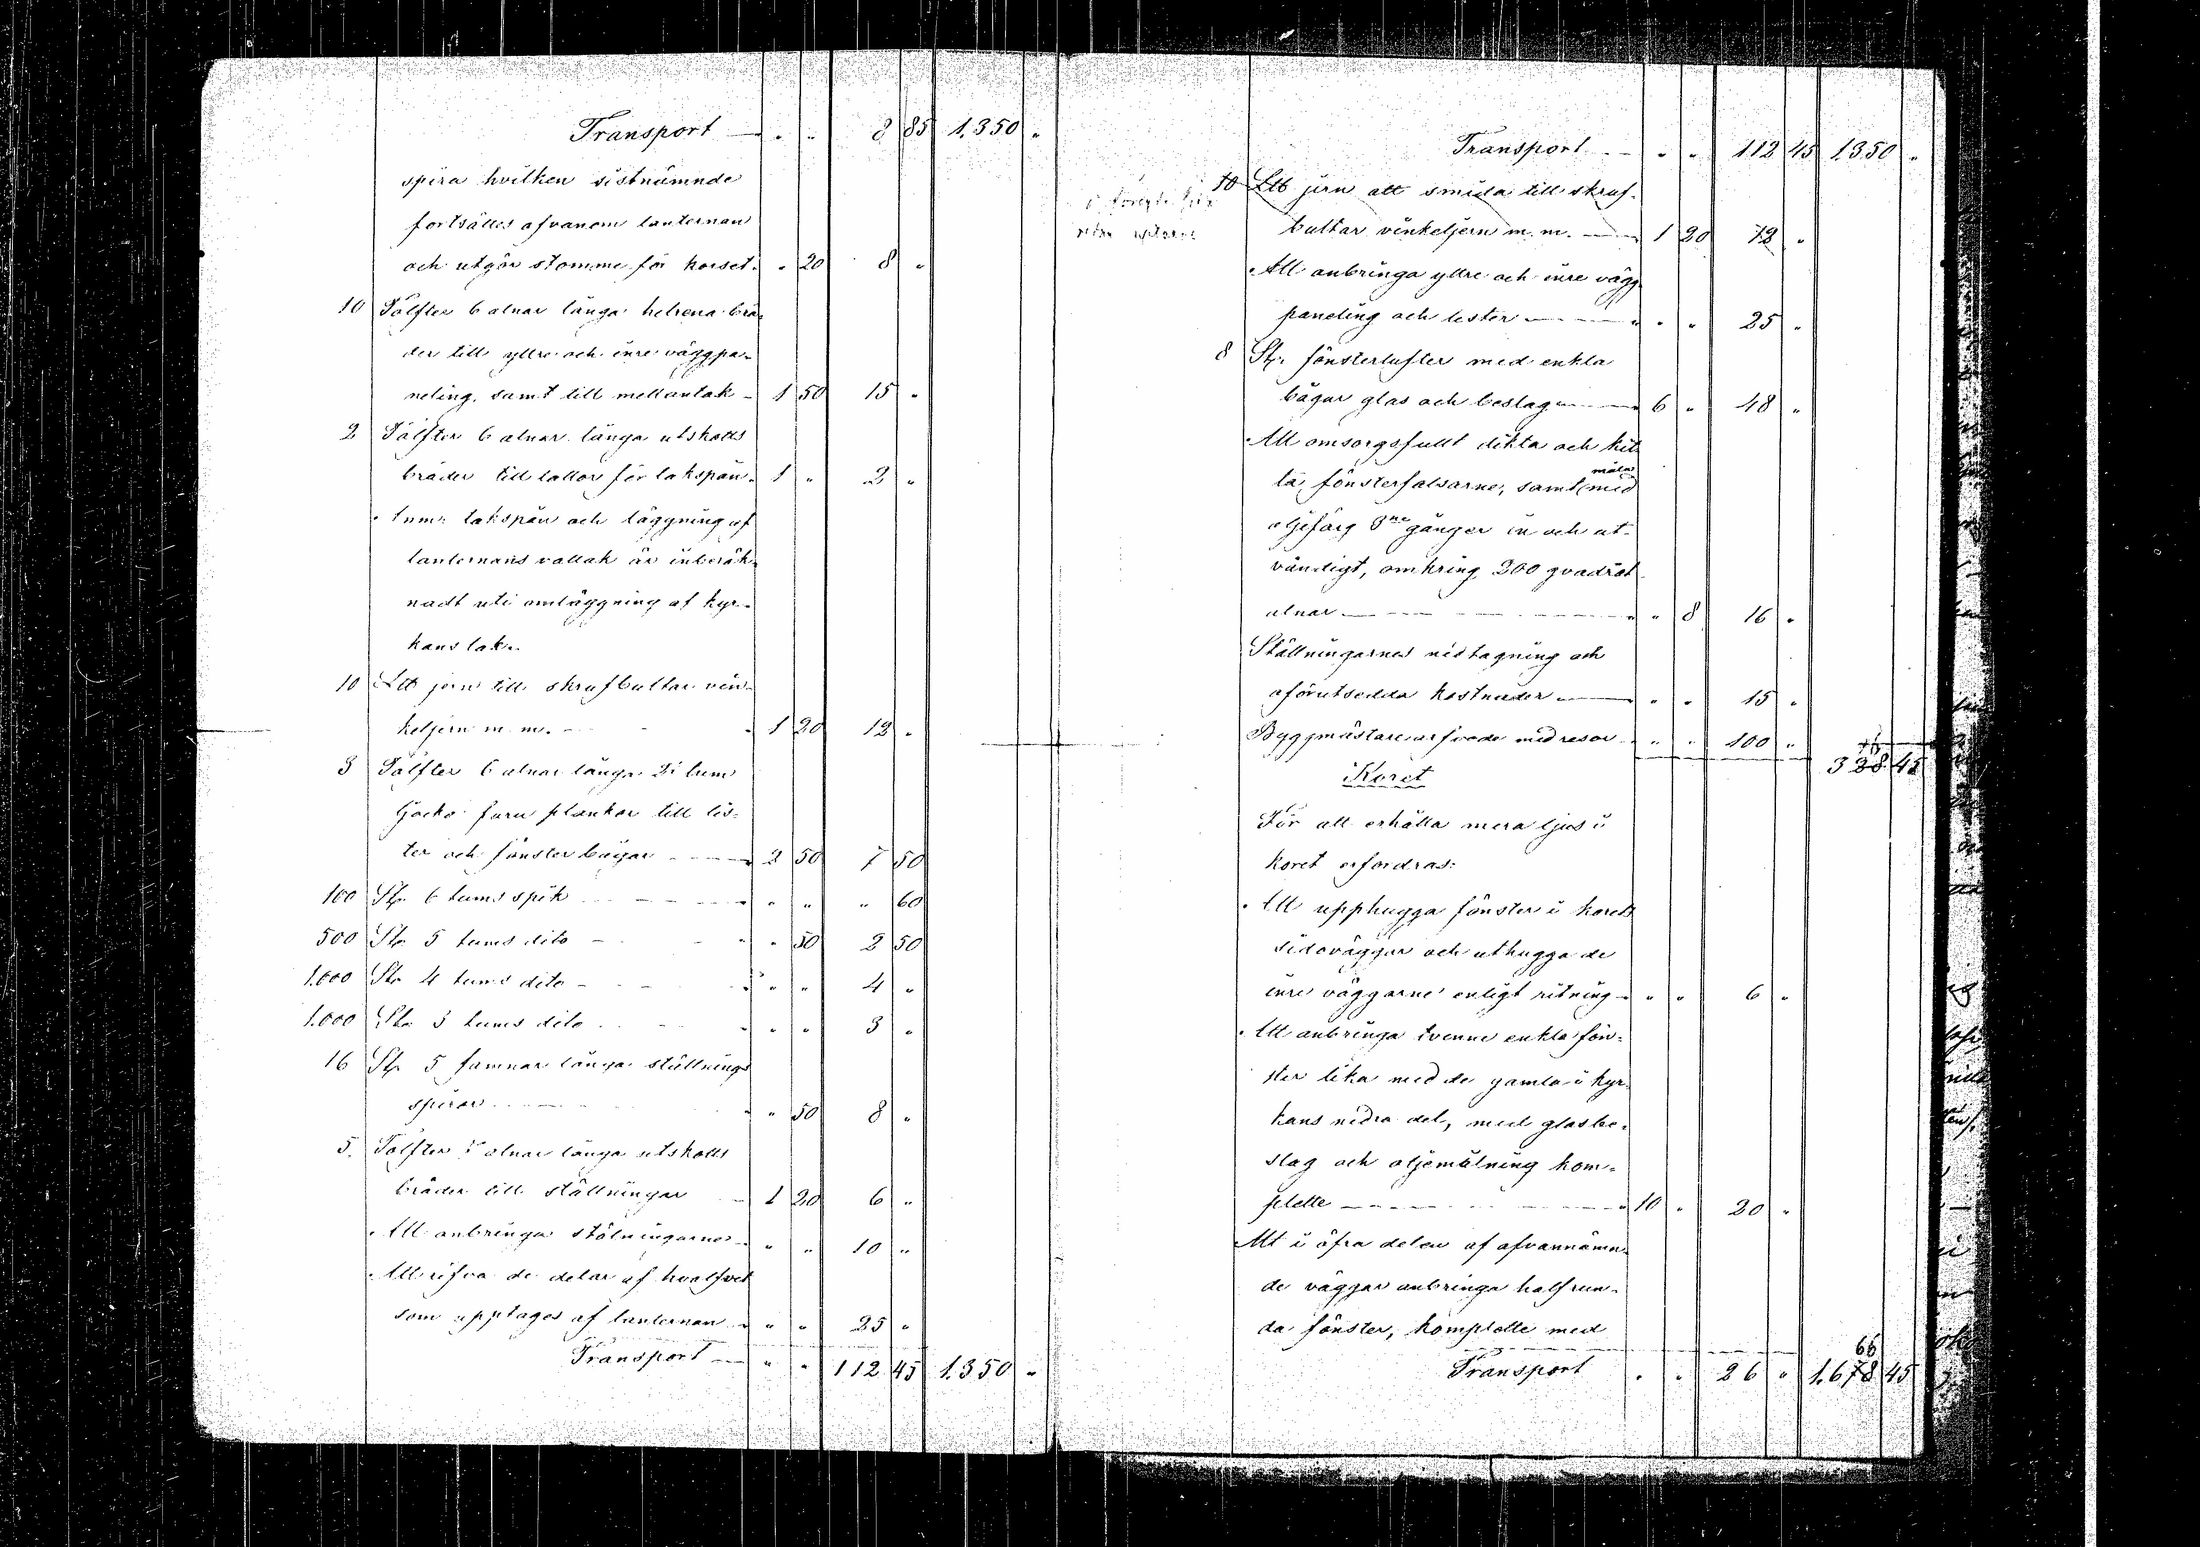 Transport — „ „ 8 85 1.350 „
spira hvilken sistnämnde
fortsättes ofvanom lanternan
och utgör stomme för korset. „ 20 8 „
10 Tolfter 6 alnar långa helrena brä-
der till yttre och inre väggpa-
neling, samt till mellantak - 1 50 15 „
2 Tolfter 6 alnar långa utskotts
bräder till lattor för takspån. 1 „ 2 „
Anm: takspån och läggning af
lanternans vattak är inberäk-
nadt uti omläggning af kyr-
kans tak.
10 Ltt jern till skrufbultar vin-
keljern m. m. - 1 20 12 „
3 Tolfter 6 alnar långa 2½ tum
tjocka furu plankor till lis-
ter och fönsterbågar - 2 50 7 50
100 St. 6 tums spik - „ „ „ 60
500 St. 5 tums dito - „ 50 2 50
1.000 St. 4 tums dito - „ „ 4 „
1.000 St. 3 tums dito - „ „ 3 „
16 St. 5 famnar långa ställnings
spiror - „ 50 8 „
5. Tolfter alnar långa utskotts
bräder till ställningar - 1 20 6 „
Att anbringa stälningarne - „ „ 10 „
Att rifva de delar af hvalfvet
som upptages af lanternan - „ „ 25 „
Transport — „ „ 112 45 1.350 „
Transport — „ „ 112 45 1.350 „
10 Ltt jern att smida till skruf-
bultar vinkeljern m. m. — 1 20 12 „
Att anbringa yttre och inre vägg
paneling och lister — „ „ 25 „
8 St. fönsterlufter med enkla
bågar glas och beslag — 6 „ 48 „
Att omsorgsfullt dikta och kit-
målas
ta fönsterfalsarne, samt med
oljefärg 3ne gånger in och ut-
vändigt, omkring 200 qvadrat
alnar — „ 8 16 „
Ställningarnes nedtagning och
oförutsedda kostnader — „ „ 15 „
Byggmästarearfvode med resor „ „ 100 „
328 45
Koret
För att erhålla mera ljus i
koret erfordras:
Att upphugga fönster i korets
sidoväggar och uthugga de
inre väggarne enligt ritning - „ „ 6 „
Att anbringa tvenne enkla fön-
ster lika med de gamla i kyr-
kans nedra del, med glas be-
slag och oljemålning kom-
plette — 10 „ 20 „
Att i öfra delen af ofvannämn-
de väggar anbringa halfrun-
da fönster, komplette med
66
Transport „ „ 26 „ 1.678 45